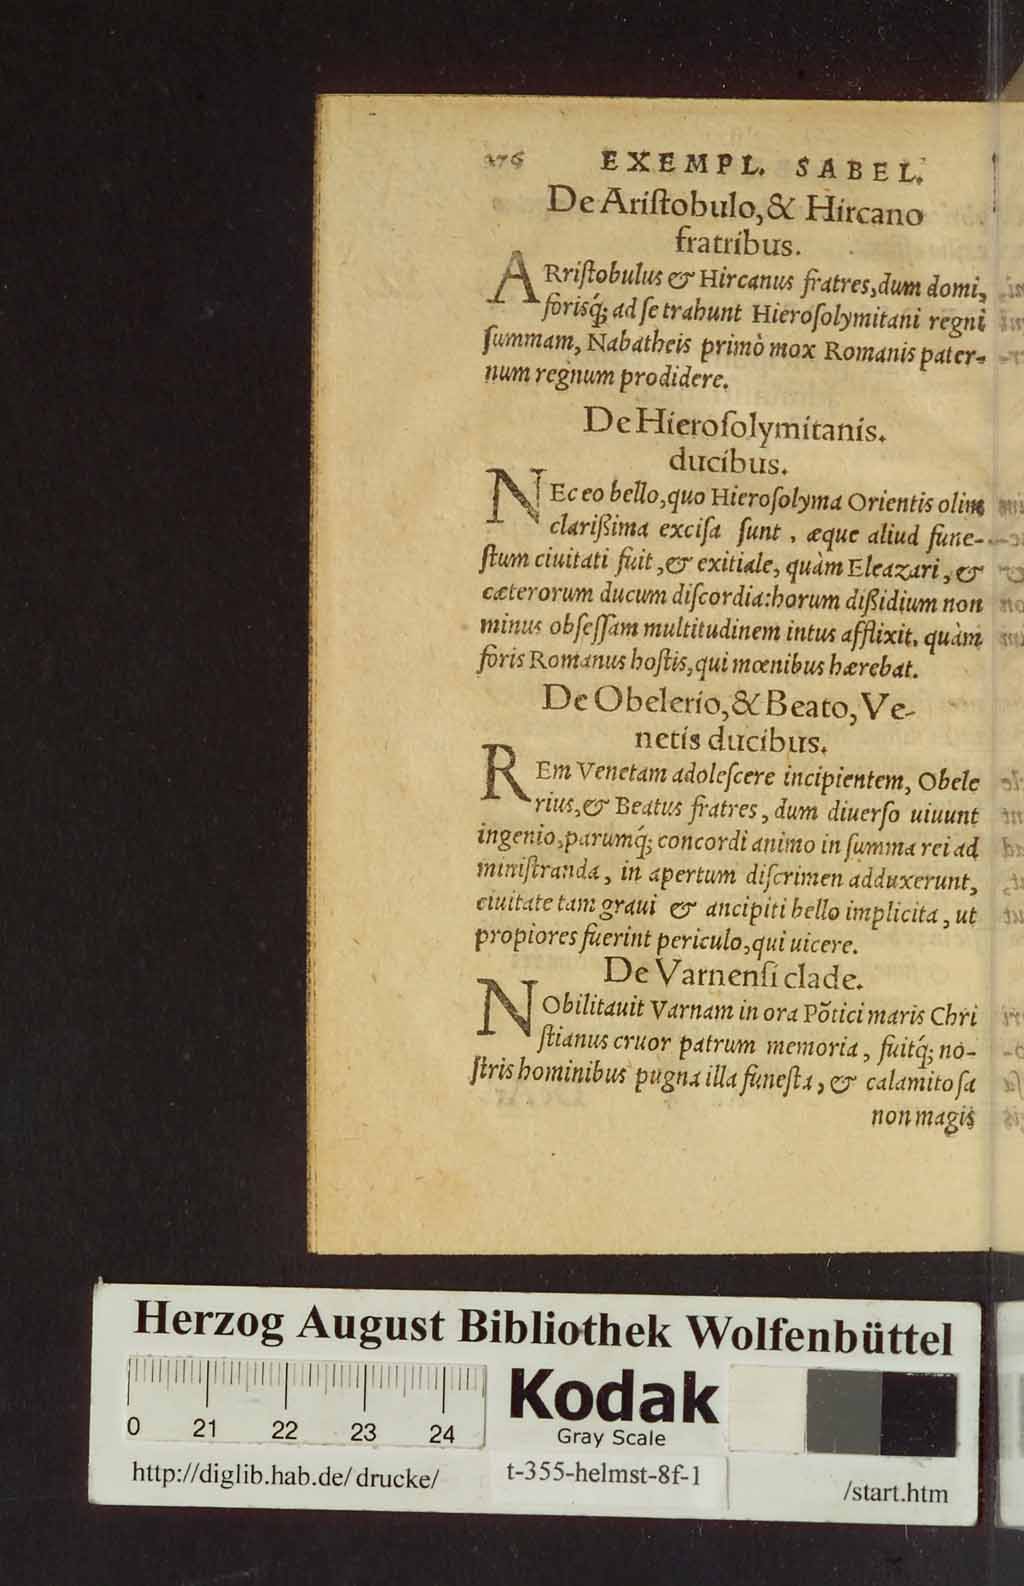 276 EXEMPL. SABEL.
De Ariſtobulo, & Hircano
fratribus.
ARriſtobulus & Hircanus fratres, dum domi,
forisq́; ad ſe trahunt Hieroſolymitani regni
ſummam, Nabatheis primò mox Romanis pater-
num regnum prodidere.
De Hieroſolymitanis.
ducibus.
NEc eo bello, quo Hieroſolyma Orientis olim
clarißima exciſa ſunt, æque aliud fune-
ſtum ciuitati fuit, & exitiale, quàm Eleazari, &
cæterorum ducum diſcordia: horum dißidium non
minus obſeſſam multitudinem intus afflixit. quàm
foris Romanus hoſtis, qui mœnibus hærebat.
De Obelerio, & Beato, Ve-
netis ducibus.
REm Venetam adoleſcere incipientem, Obele
rius, & Beatus fratres, dum diuerſo uiuunt
ingenio, parumq́; concordi animo in ſumma rei ad
miniſtranda, in apertum diſcrimen adduxerunt,
ciuitate tam graui & ancipiti bello implicita, ut
propiores fuerint periculo, qui uicere.
De Varnenſi clade.
NObilitauit Varnam in ora Põtici maris Chri
ſtianus cruor patrum memoria, fuitq́; no-
ſtris hominibus pugna illa funeſta, & calamitoſa
non magis
Herzog August Bibliothek Wolfenbüttel
0 21 22 23 24
Kodak
Gray Scale
http://diglib.hab.de/drucke/
t-355-helmst-8f-1
/start.htm